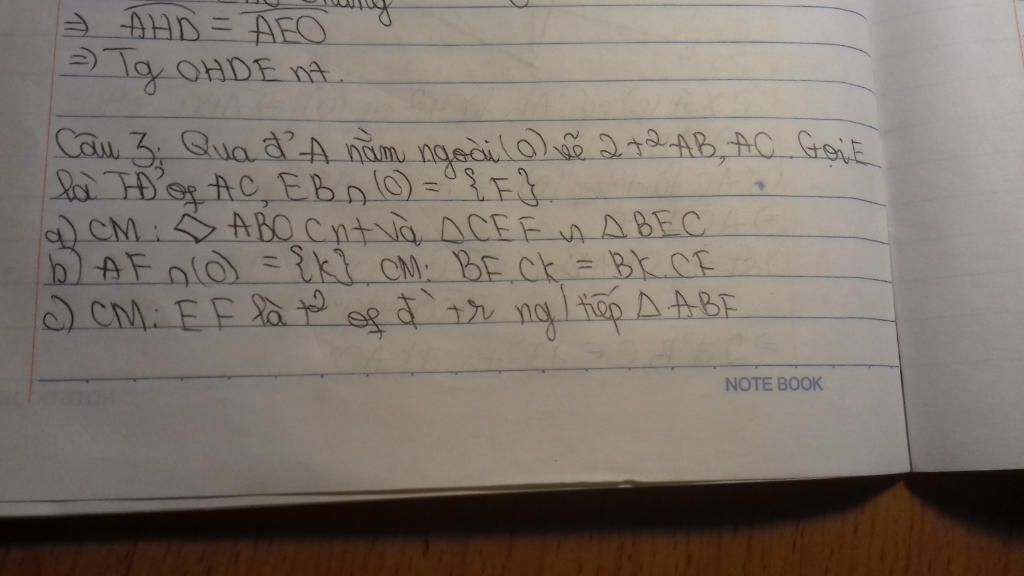 ⇒ AHD = AEO
⇒) Tg OHDE nt.
Câu 3: Qua đ' A nằm ngoài (O) vẽ 2 t² AB, AC. Gọi E
là TĐ' of AC, EB ∩ (O) = {F}.
a) CM: ◇ ABOC nt và ΔCEF ∽ ΔBEC
b) AF ∩ (O) = {K}. CM: BF.CK = BK.CF
c) CM: EF là t² of đ' tr ng/tiếp ΔABF
NOTE BOOK